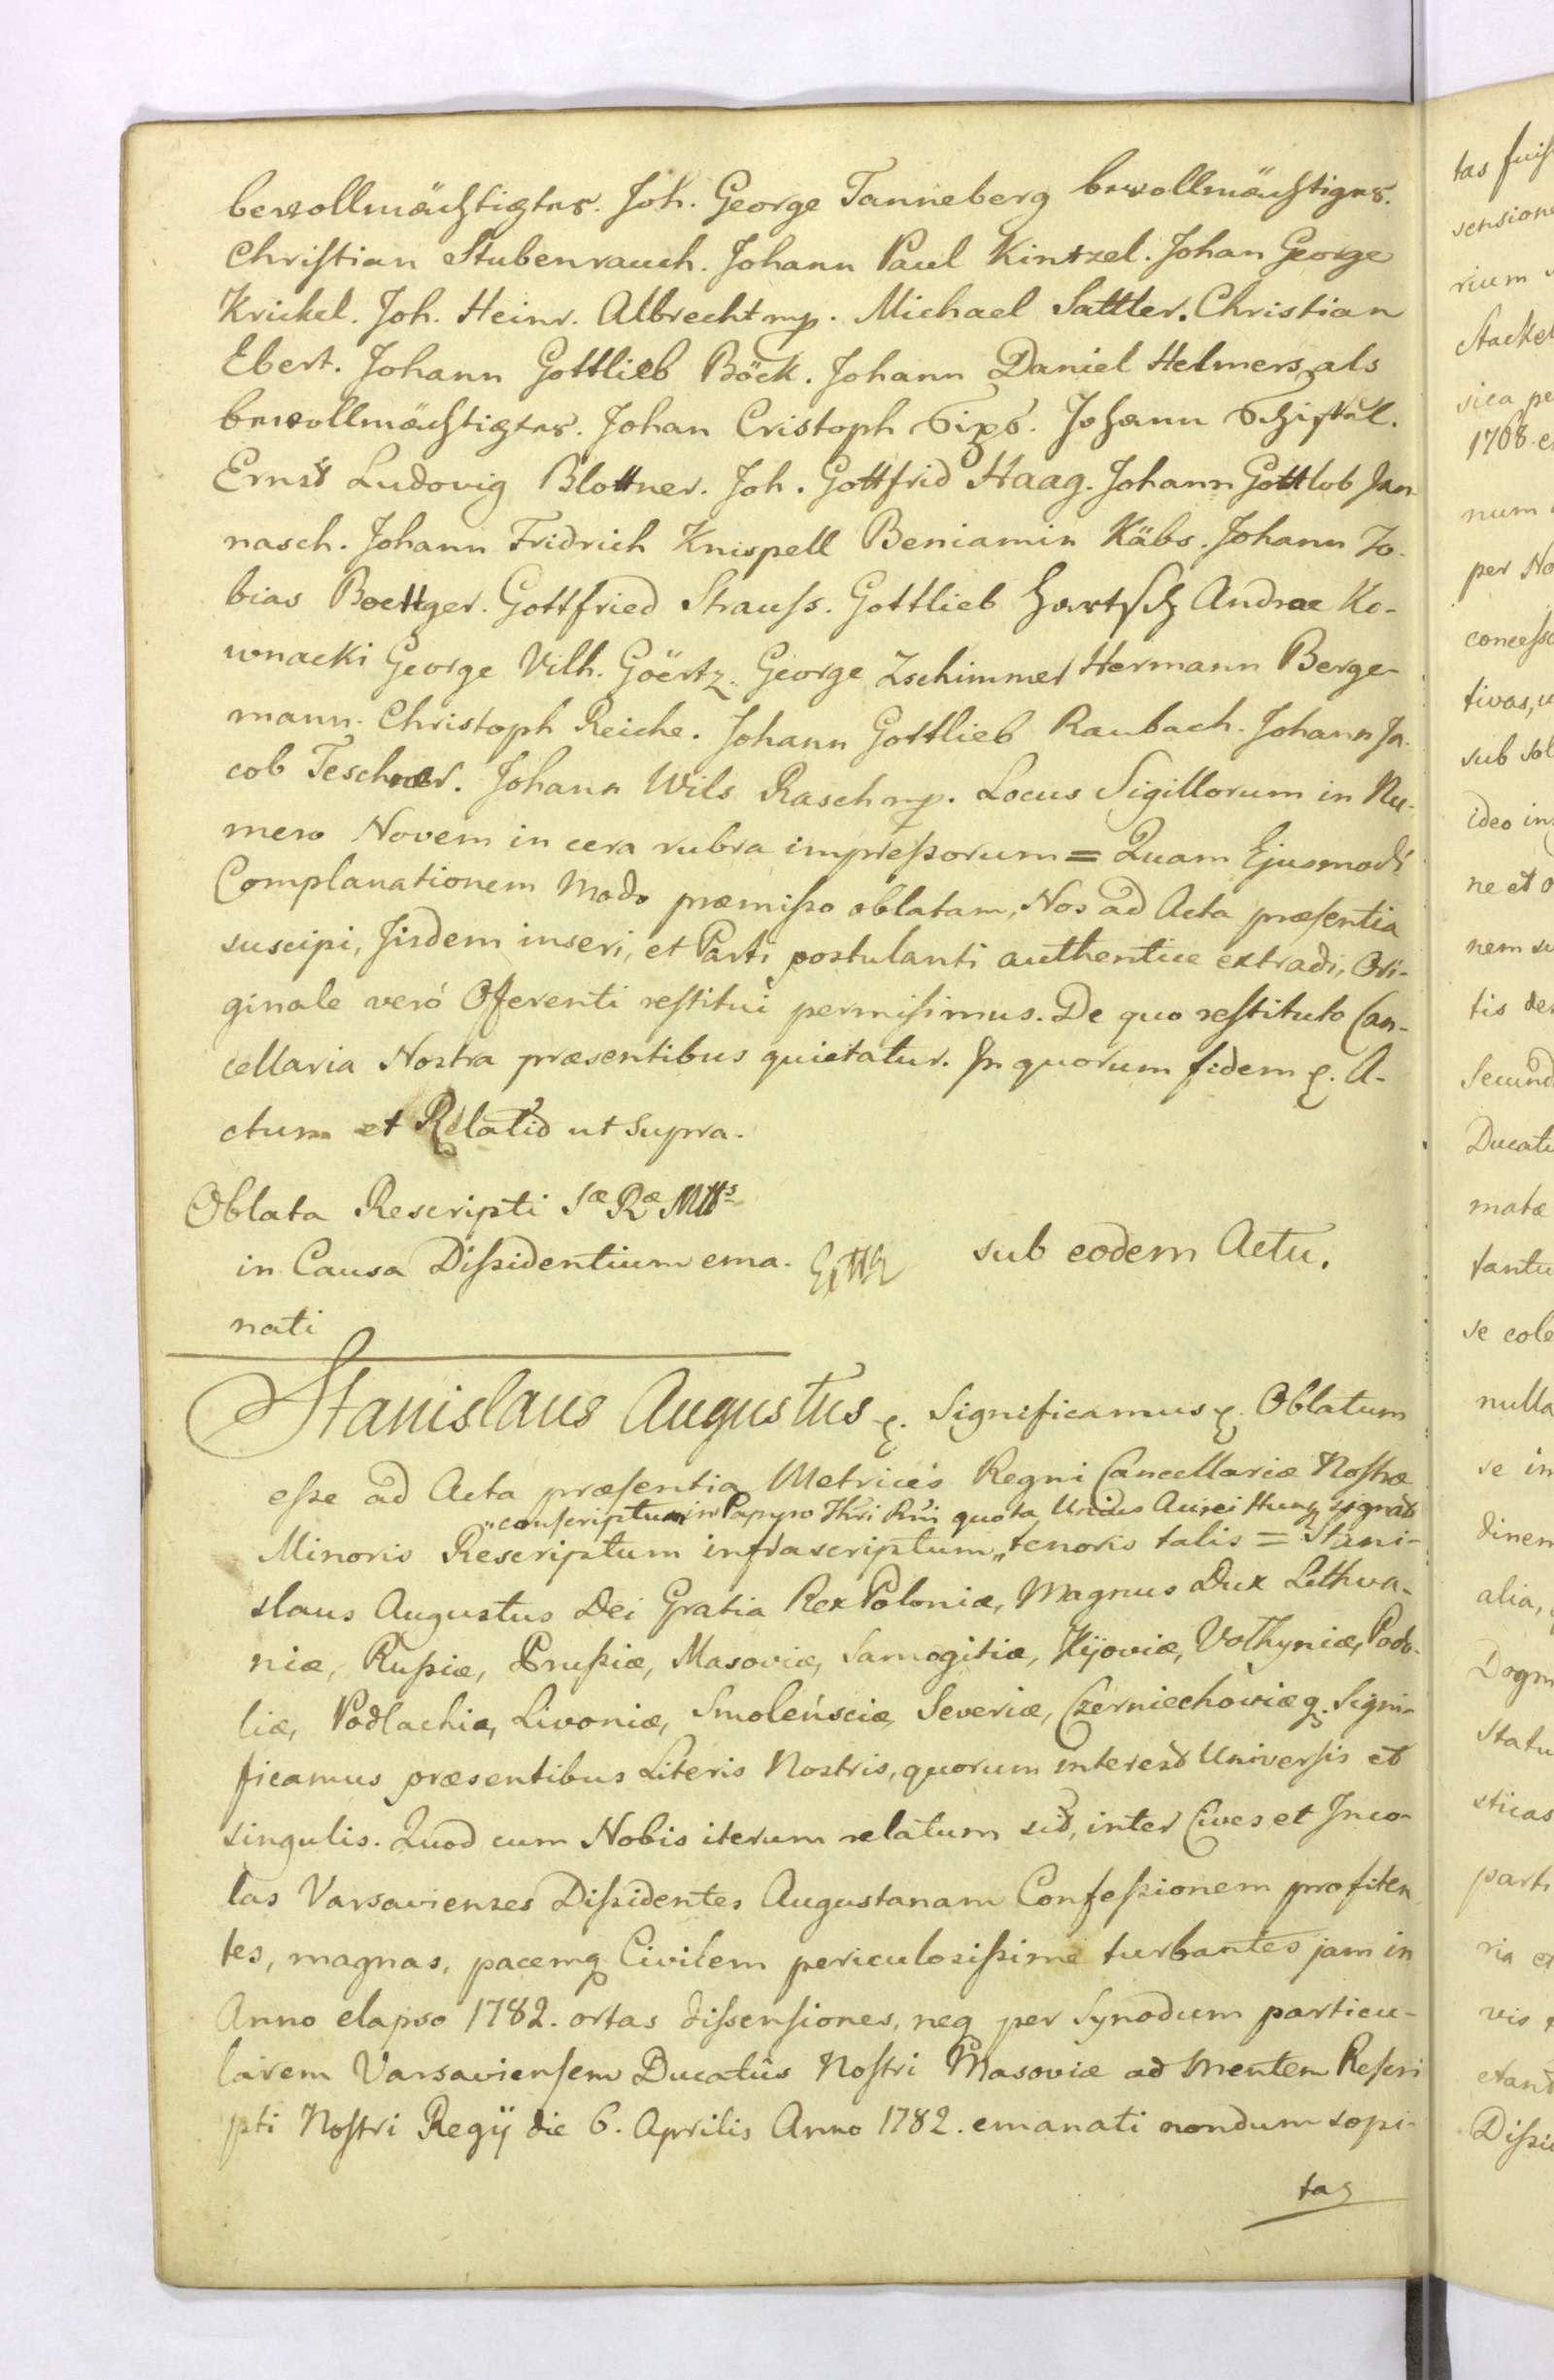 bevollmächtigter. Joh. George Tanneberg bevollmächtigter.
Christian Stubenrauch. Johann Paul Kintzel. Johan George
Krickel. Joh. Heinr. Albrecht mp. Michael Sattler. Christian
Ebert. Johann Gottlieb Böck. Johann Daniel Helmers, als
bevollmächtigter. Johan Cristoph Johann
Ernst Ludovig Blottner. Joh. Gottfrid Haag. Johann Gottlob Jan-
nasch. Johann Fridrich Knispell Beniamin Käbs. Johann To-
bias Boettger. Gottfried Strauss. Gottlieb Hartsch Andrae Ko-
wnacki George Vilh. Göertz. George Zschimmer Hermann Berge-
mann. Christoph Reiche. Johann Gottlieb Raubach. Johann Ja-
cob Teschner. Johann Wils Rasch mp. Locus Sigillorum in Nu-
mero Novem in cera rubra impressorum = Quam Ejusmodi
Complanationem Modo præmisso oblatam, Nos ad Acta præsentia
suscipi, Jisdem inseri, et Parti postulanti authentice extradi, Ori-
ginale veró Oferenti restitui permisimus. De quo restituto Can-
cellaria Nostra præsentibus quietatur. In quorum fidem &. A-
ctum et Relatio ut supra.
Oblata Rescripti Sæ Ræ Mttis
in Causa Dissidentium ema- sub eodem Actu.
nati
Stanislaus Augustus &. Significamus &. Oblatum
esse ad Acta præsentia Metrices Regni Cancellariæ Nostræ
„conscriptum in Papyro Thri Rni quota Unius Aurei Hung signato
Minoris Rescriptum infrascriptum „ tenoris talis = Stani-
slaus Augustus Dei Gratia Rex Poloniæ, Magnus Dux Lithva-
niæ, Russiæ, Prussiæ, Masoviæ, Samogitiæ, Kijoviæ, Volhyniæ, Podo-
liæ, Podlachiæ, Livoniæ, Smolensciæ, Severiæ, Czerniechoviæq. Signi-
ficamus præsentibus Literis Nostris, quorum interest Universis et
singulis. Quod cum Nobis iterum relatum sit, inter Cives et Inco-
las Varsavienses Dissidentes Augustanam Confessionem profiten-
tes, magnas, pacemq Civilem periculosissime turbantes jam in
Anno elapso 1782. ortas dissensiones, neq per Synodum particu-
larem Varsaviensem Ducatûs Nostri Masoviæ ad mentem Rescri
pti Nostri Regij die 6. Aprilis Anno 1782. emanati nondum sopi-
tas
tas fuis
sension
rium
Stackel
sica pe
1768. e
num
per No
concess
tivas, u
sub sol
ideo in
ne et o
nem su
tis de
Secund
Ducatu
matæ
tantu
se cole
nulla
se in
dinem
alia,
Dogm
Statu
sticas
parti
ria et
vis
etand
Dissi